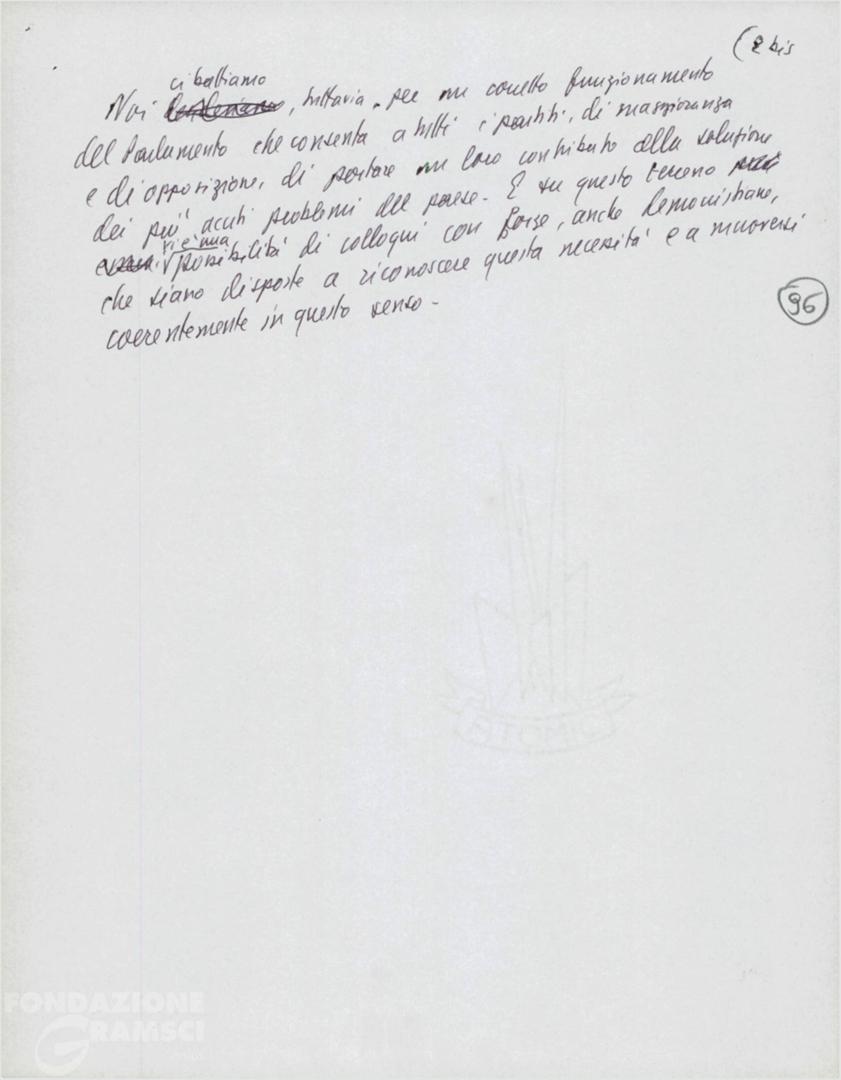 (2 bis
ci battiamo
Noi, tuttavia, per un corretto funzionamento
del Parlamento che consenta a tutti i partiti, di maggioranza
e di opposizione, di portare un loro contributo alla soluzione
dei più acuti problemi del paese. E su questo terreno
vi è una
possibilità di colloqui con forze, anche democristiane,
che siano disposte a riconoscere questa necessità e a muoversi
coerentemente in questo senso.
96
ATOMIC
FONDAZIONE
GRAMSCI